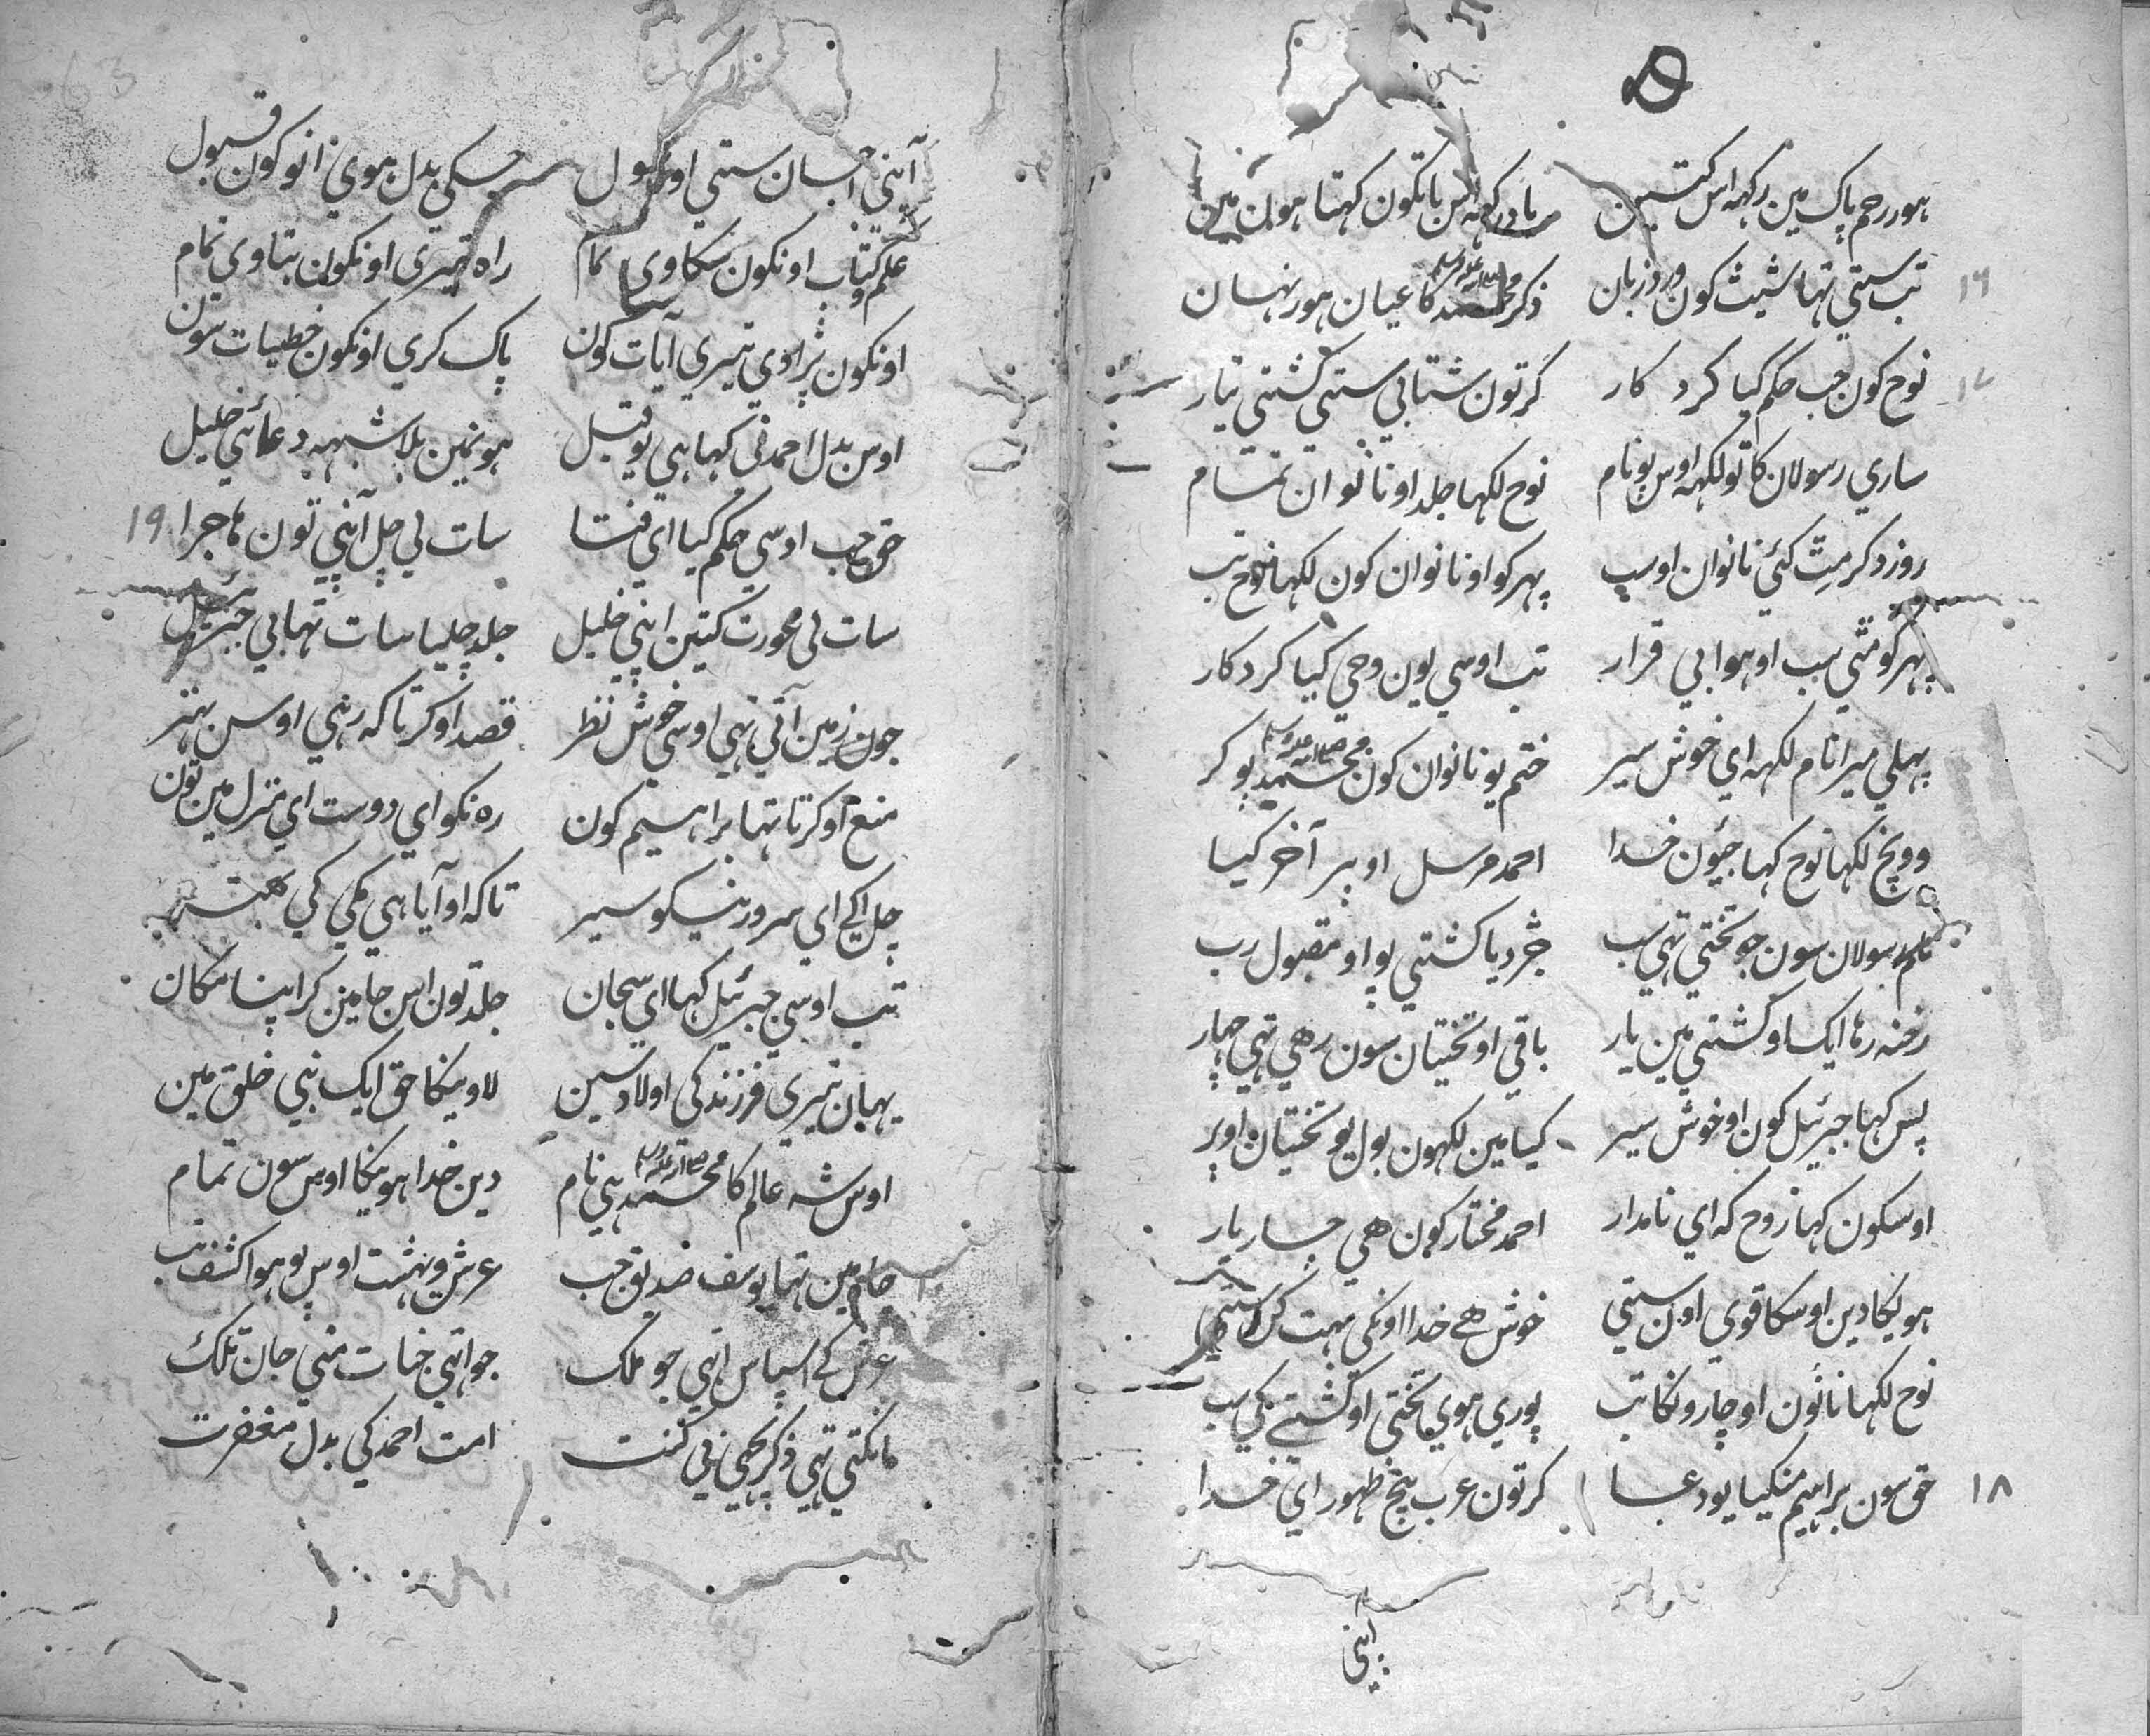 ۵
ہور رحم پاک مین رکہہ اس کتین یاد رکہہ اس باتکون کہتا ہون مین
۱۶ تب ستی تہا شیث کون ورد زبان ذکر محمد صلی اللہ علیہ وسلم کا عیان ہور نہان
۱۷ نوح کون جب حکم کیا کردکار کر تون شتابی ستی کشتی تیار
ساری رسولان کا تو لکہہ اوس پو نام نوح لکہا جلد او نانوان تمام
روز دکر مٹ کئی نانوان او سب پہر کو او نانوان کون لکہا نوح تب
پہر کو مٹی سب او ہوا بی قرار تب اوسی یون وحی کیا کردکار
پہلی میرا نام لکہہ ای خوش سیر ختم یو نانوان کون محمد صلی اللہ علیہ وسلم پو کر
وونچ لکہا نوح کہا جیون خدا احمد مرسل او پر آخر کیا
نام رسولان سون جو تختی تہی سب جڑ دیا کشتی پو او مقبول رب
رخنہ رہا ایک او کشتی مین یار باقی او تختیان سون رہی تہی چہار
پس کہا جبرئیل کون او خوش سیر کیا مین لکہون بول یو تختیان اوپر
اوسکون کہا روح کہ ای نامدار احمد مختار کون ہی چار یار
ہویکا دین اوسکا قوی اون ستی خوش ہے خدا اونکی بہت
نوح لکہا نانون او چارونکا تب پوری ہوی تختی او کشتے کی سب
۱۸ حق سون براہیم منکیا یو دعا کر تون عرب بیچ ظہور ای خدا
اپنی
اپنی احسان ستی او رسول جسکی بدل ہوی انو کون قبول
علم و کتاب اونکون سکاوی تمام راہ تیری اونکون بتاوی تمام
اونکون پڑاوی تیری آیات کون پاک کری اونکون خطیات سون
اوس بدل احمد نی کہا ہی یو قیل ہونمین بلا شبہہ دعائی خلیل
حق جب اوسی حکم کیا ای فتا سات لی چل اپنی تون ہاجرا ۱۹
سات لی عورت کتین اپنی خلیل جلد چلیا سات تہا بی جبرئیل
جون زمین آتی تہی اوسی خوش نظر قصد او کرتا کہ رہی اوس بہتر
منع او کرتا تہا براہیم کون رہ نکو ای دوست ای منزل مین تون
چل اکے ای سرور نیکو سیر تاکہ او آیا ہی مکی کی
تب اوسی جبرئیل کہا ای سجان جلد تون اس جا مین کر اپنا مکان
یہان تیری فرزند کی اولاد سین لاویکا حق ایک نبی خلق مین
اوس شہ عالم کا محمد صلی اللہ علیہ وسلم ہی نام دین خدا ہویکا اوس سون تمام
چاہ مین تہا یوسف صدیق جب عرش و بہشت اوس پو ہوا کشف تب
عرش کے اسپاس اتہی جو ملک جو اتہی جنات منی جان تلک
مانکتی تہی ذکر پچہی امت احمد کی بدل مغفرت